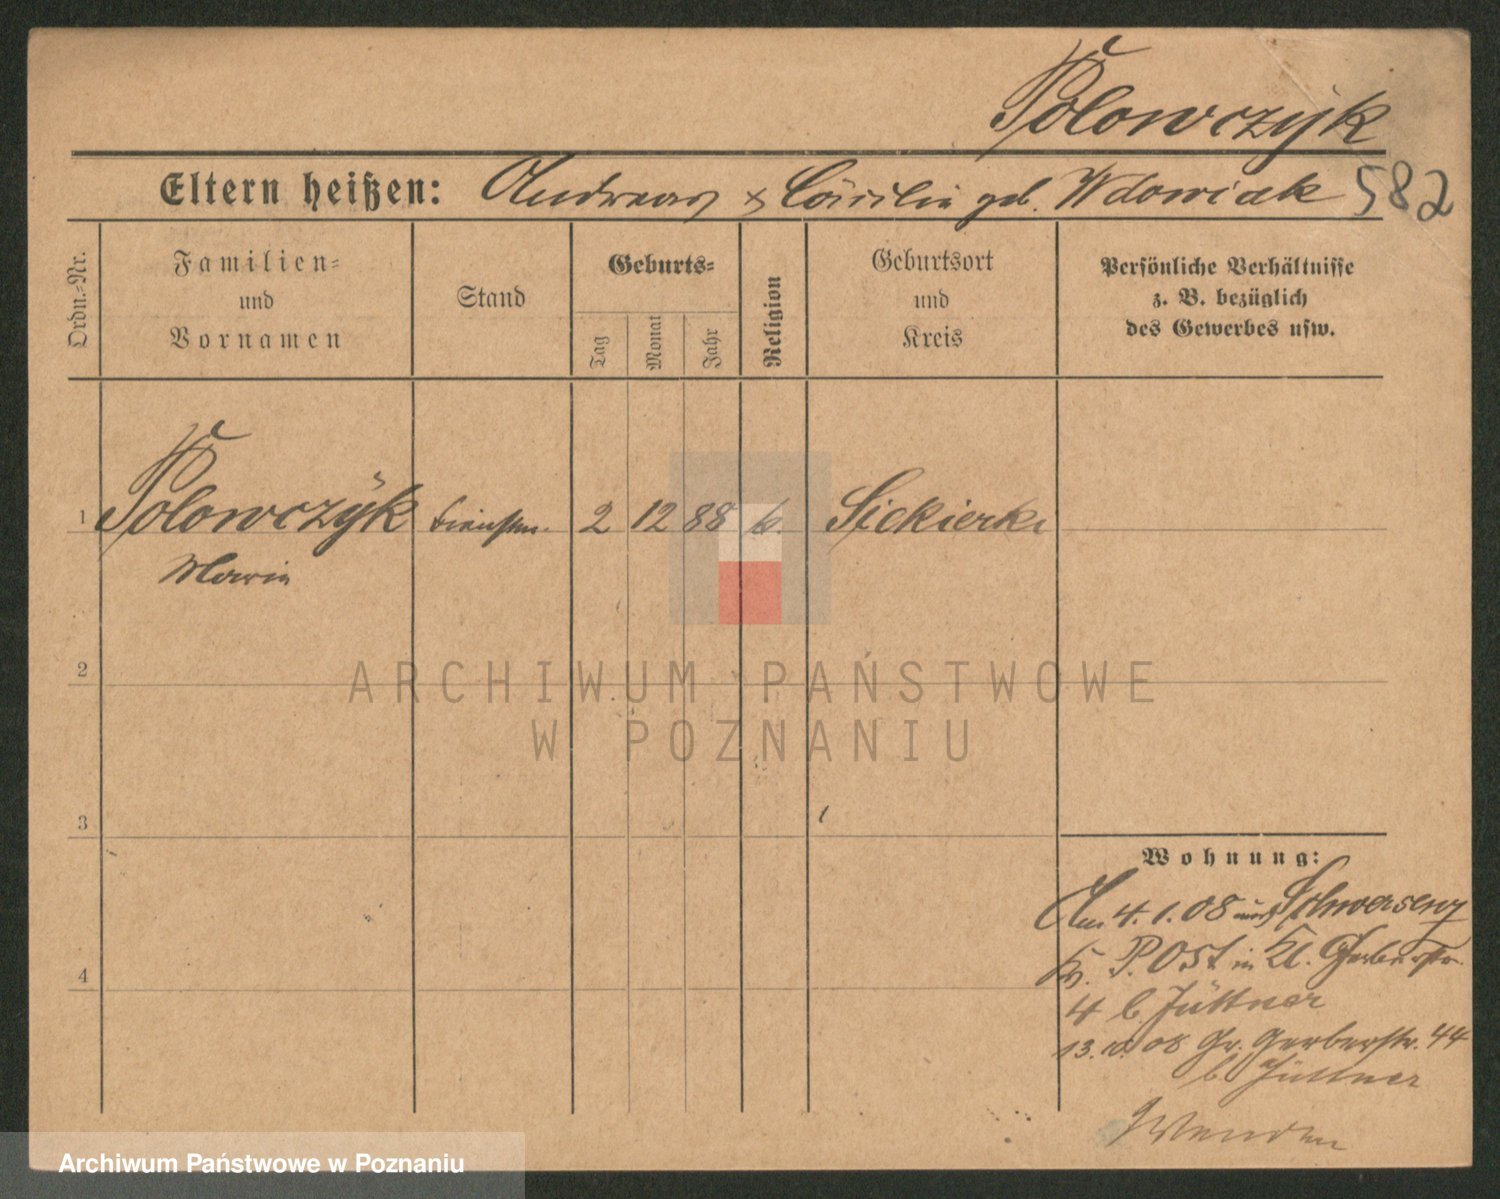 Polowczyk
Eltern heißen: Andreas & Cäcilie geb. Wdowiak 582
Ordn.=Nr.
Familien=
und
Vornamen
Stand
Geburts=
Tag
Monat
Jahr
Religion
Geburtsort
und
Kreis
Persönliche Verhältnisse
z. B. bezüglich
des Gewerbes usw.
1 Polowczyk 2 12 88 k. Siekierki
Marie
2
ARCHIWUM PAŃSTWOWE
W POZNANIU
3
Wohnung:
Am 4.1.08 aus Schwersenz
Kr. P. Ost in Kl. Gerberstr.
4 4 b. Jüttner
13. 08 Gr. Gerberstr. 44
b. Jüttner
Wenden
Archiwum Państwowe w Poznaniu